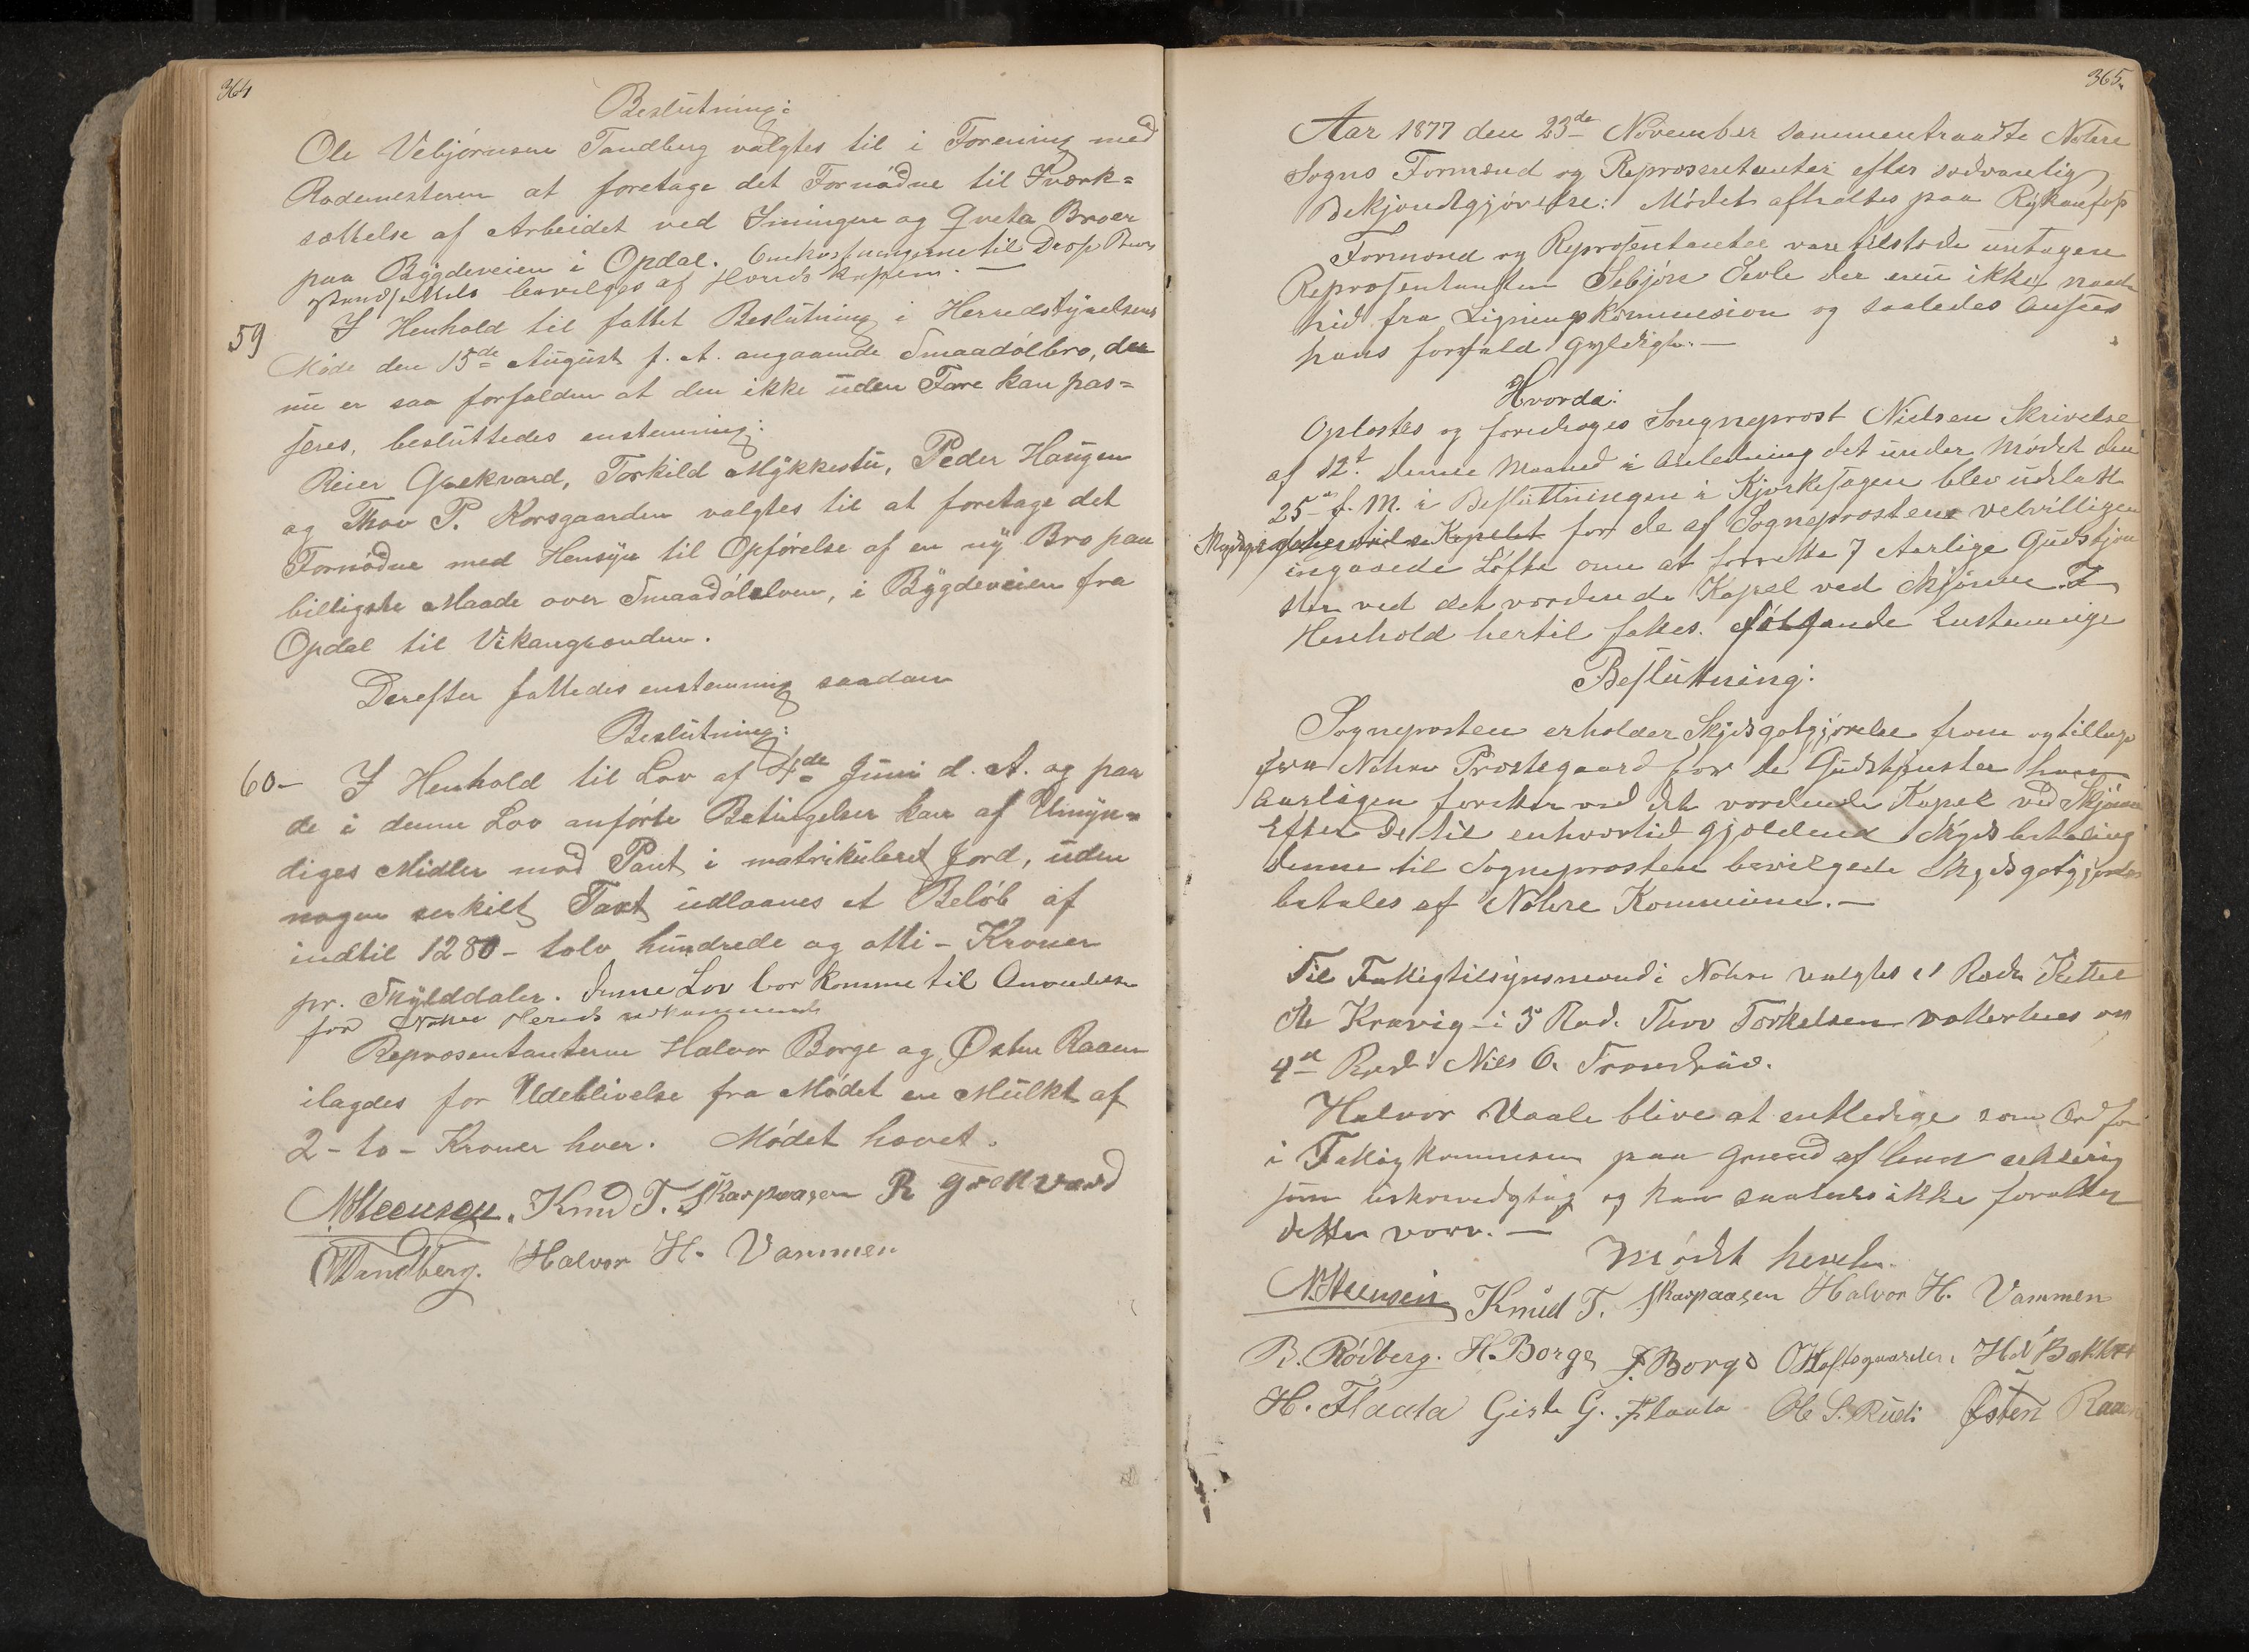 364
Beslutning:
Ole Vebjørnsen Tandberg valgtes til i Forening med
Rodemesteren at foretage det Fornødne til Iværk=
sættelse af Arbeidet ved Imingen og Qveta Broer
paa Bygdeveien i Opdal. Omkostningerne til Disse Broers
Istandsættels bevilges af Herredskassen. —
59
I Henhold til fattet Beslutning i Herredstyrelsens
Møde den 15de August f. A. angaaende Smaadølbro, der
nu er saa forfalden at den ikke uden Fare kan pas=
seres, besluttedes enstemmig:
Reier Grækvard, Torkild Mykkestu, Peder Haugen
og Thov P. Korsgaarden valgtes til at foretage det
Fornødne med Hensyn til Opførelse af en ny Bro paa
billigste Maade over Smaadølelven, i Bygdeveien fra
Opdal til Vikangranden.
Derefter fattedes enstemmig saadan
Beslutning:
60- I Henhold til Lov af 4de Juni d. A. og paa
de i denne Lov anførte Betingelser kan af Umyn=
diges Midler mod Pant i matrikuleret Jord, uden
nogen serkilt Taxt udlaanes et Beløb af
indtil 1280 - tolv hundrede og otti - Kroner
pr. Skylddaler. Denne Lov bør komme til Anvendelse
for Nore Hereds vedkommende
Repræsentanterne Halvor Borge og Østen Raaen
ilagdes for Udeblivelse fra Mødet en Mulkt af
2 - to - Kroner hver. Mødet hævet.
NSteensen. Knud T. Skarpaasen R Grækvard
OVTandberg. Halvor H. Vammen
365.
Aar 1877 den 23de November sammentraadte Nohre
Sogns Formænd og Representanter efter sædvanlig
Bekjendtgjørelse: Mødet afholtes paa Rykanfos
Formænd og Representanter vare tilstede untagen
Representanten Sebjørn Sevle der enu ikke naade
hid fra Ligningskommision og saaledes Ansees
hans forfald gyldigt. —
Hvorda:
Oplæstes og foredroges Songneprost Nielsen Skrivelse
af 12t denne Maaned i Anledning det under Mødet den
25 f. M. i Beslutningen i Kjerkesagen blev udelatt
Kapelet for de af Sogneprosten velvilligen
ingaaede Løfte om at forrette 7 Aarlige Gudstjen
ster ved det vordende Kapel ved Skjønne. I
Henhold hertil fattes følgende Enstemmige
Beslutning:
Sogneprosten erholder Skjdsgotgjørelse frem og tilbage
fra Nohre Prostegaard for de Gudstjenster han
Aarligen foretter ved det vordende Kapel ved Skjønne
Efter De til enhvertid gjeldend Skyds betaling
denne til Sogneprosten bevilgede Skydsgotgjørelse
betales af Nohre Kommune. —
Til Fattigtilsynsmænd i Nohre valgtes i 1 Rode Kittel
Ole Kravig - i 3 Rod. Thov Torkelsen og
4de Rode Nils O. Trondrud.
Halvor Vaale blive at entledige som Ordfør
i Fattigkommisen paa Grund af
som og kan saaledes ikke
dette værv. —
Mødet hevet.
NSteensen Knud T. Skarpaasen Halvor H. Vammen
B. Rødberg. H. Borge F. Borge O Hoftsgaarden. H Bakken
H. Flaata Gisle G. Flaata Ole S. Rudi Østen Raaen